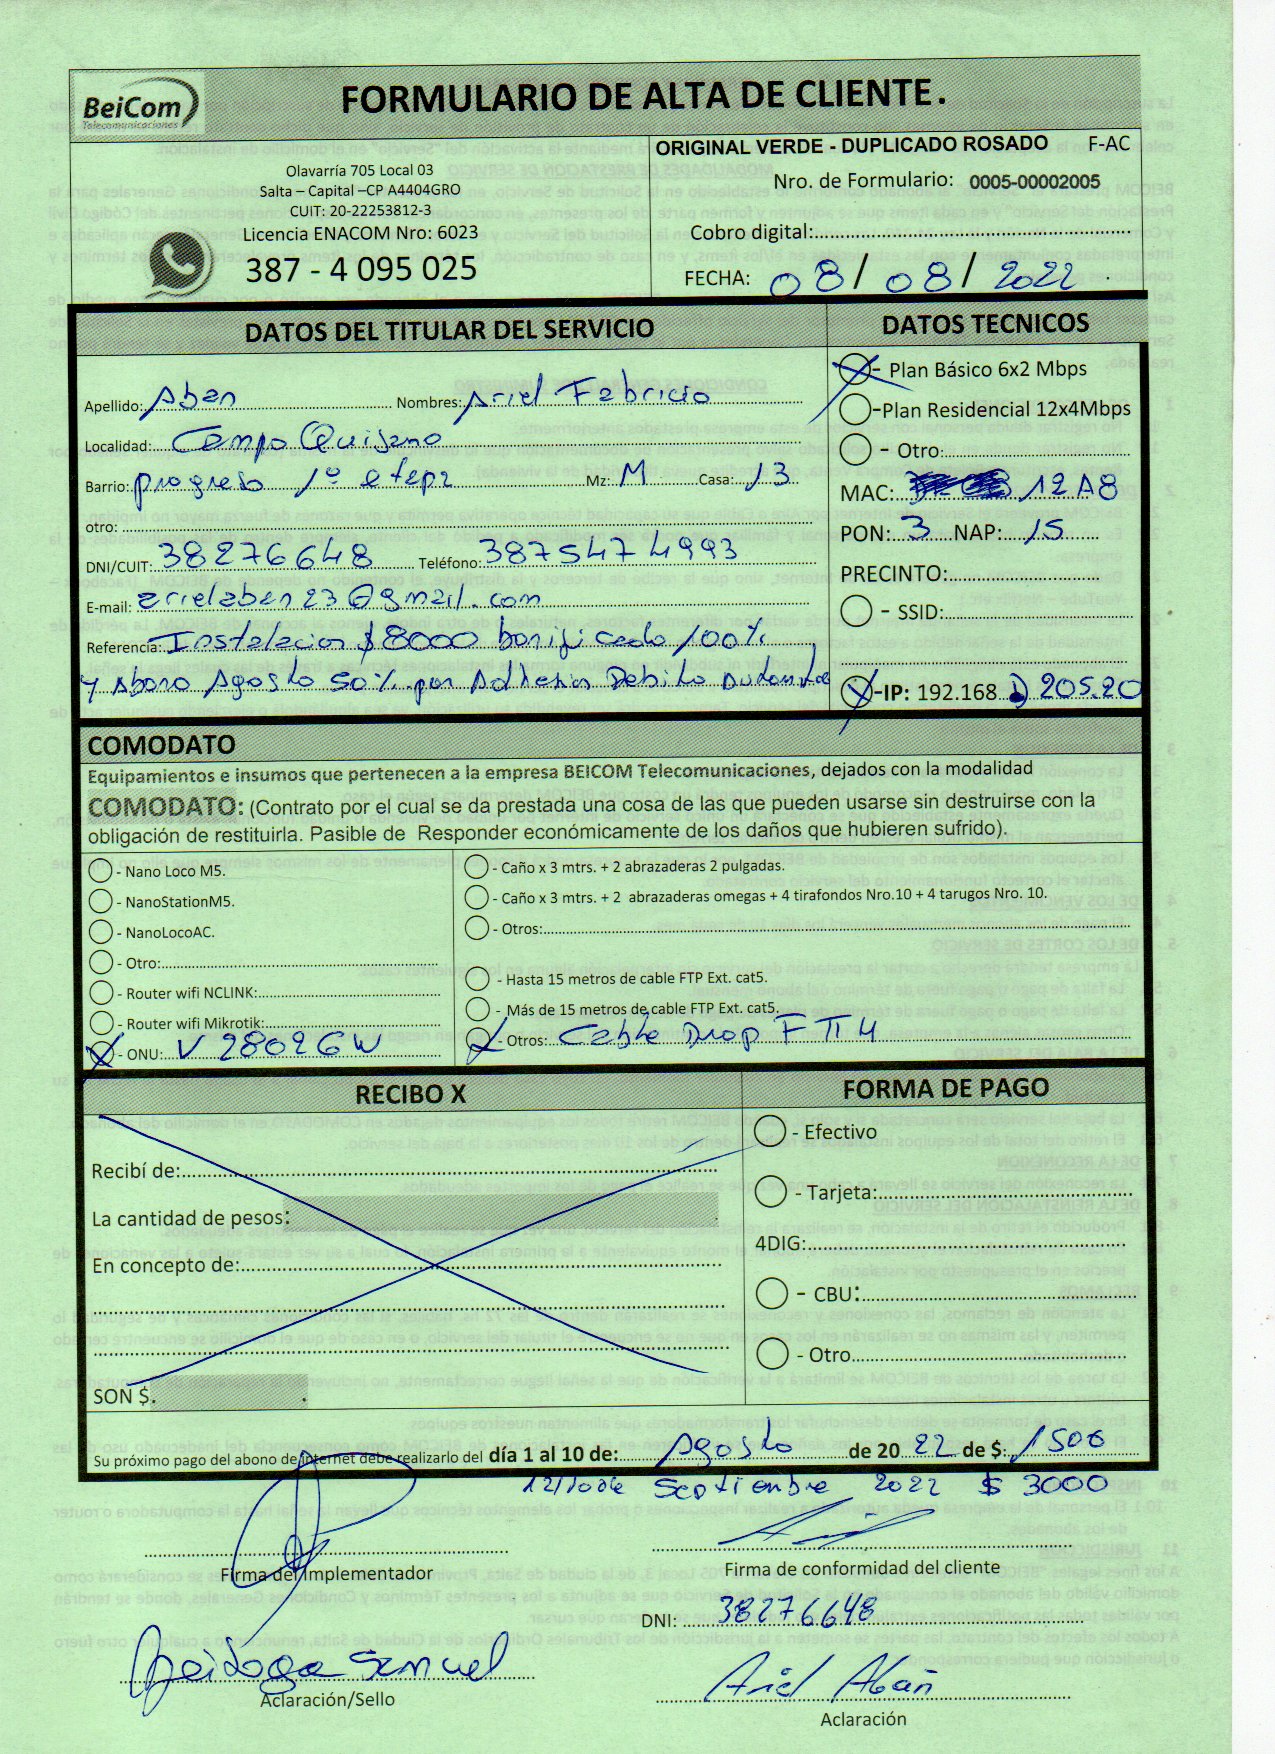 BeiCom
Telecomunicaciones
FORMULARIO DE ALTA DE CLIENTE.
ORIGINAL VERDE - DUPLICADO ROSADO F-AC
Olavarría 705 Local 03
Salta – Capital –CP A4404GRO
CUIT: 20-22253812-3
Licencia ENACOM Nro: 6023
387 - 4 095 025
Nro. de Formulario: 0005-00002005
Cobro digital:
FECHA: 08/08/2022
DATOS DEL TITULAR DEL SERVICIO
Apellido: Aban Nombres: Ariel Fabricio
Localidad: Campo Quijano
Barrio: progreso 1º etapa Mz: M Casa: 13
otro:
DNI/CUIT: 38276648 Teléfono: 3875474993
E-mail: arielaban23@gmail.com
Referencia: Instalacion $8000 bonificado 100%
y Abono Agosto 50% por Adhesion Debito
DATOS TECNICOS
- Plan Básico 6x2 Mbps
-Plan Residencial 12x4Mbps
- Otro:
MAC: 12A8
PON: 3 NAP: 15
PRECINTO:
- SSID:
-IP: 192.168. 205.20
COMODATO
Equipamientos e insumos que pertenecen a la empresa BEICOM Telecomunicaciones, dejados con la modalidad
COMODATO: (Contrato por el cual se da prestada una cosa de las que pueden usarse sin destruirse con la
obligación de restituirla. Pasible de Responder económicamente de los daños que hubieren sufrido).
- Nano Loco M5.
- NanoStationM5.
- NanoLocoAC.
- Otro:
- Router wifi NCLINK:
- Router wifi Mikrotik:
- ONU: V2802GW
- Caño x 3 mtrs. + 2 abrazaderas 2 pulgadas.
- Caño x 3 mtrs. + 2 abrazaderas omegas + 4 tirafondos Nro.10 + 4 tarugos Nro. 10.
- Otros:
- Hasta 15 metros de cable FTP Ext. cat5.
- Más de 15 metros de cable FTP Ext. cat5.
- Otros: Cable Drop FTTH
RECIBO X
Recibí de:
La cantidad de pesos:
En concepto de:
SON $.
FORMA DE PAGO
- Efectivo
- Tarjeta:
4DIG:
- CBU:
- Otro
Su próximo pago del abono de internet debe realizarlo del día 1 al 10 de: Agosto de 2022 de $: 1500
Septiembre 2022 $ 3000
Firma del Implementador
Firma de conformidad del cliente
DNI: 38276648
Samuel
Aclaración/Sello
Ariel Abán
Aclaración